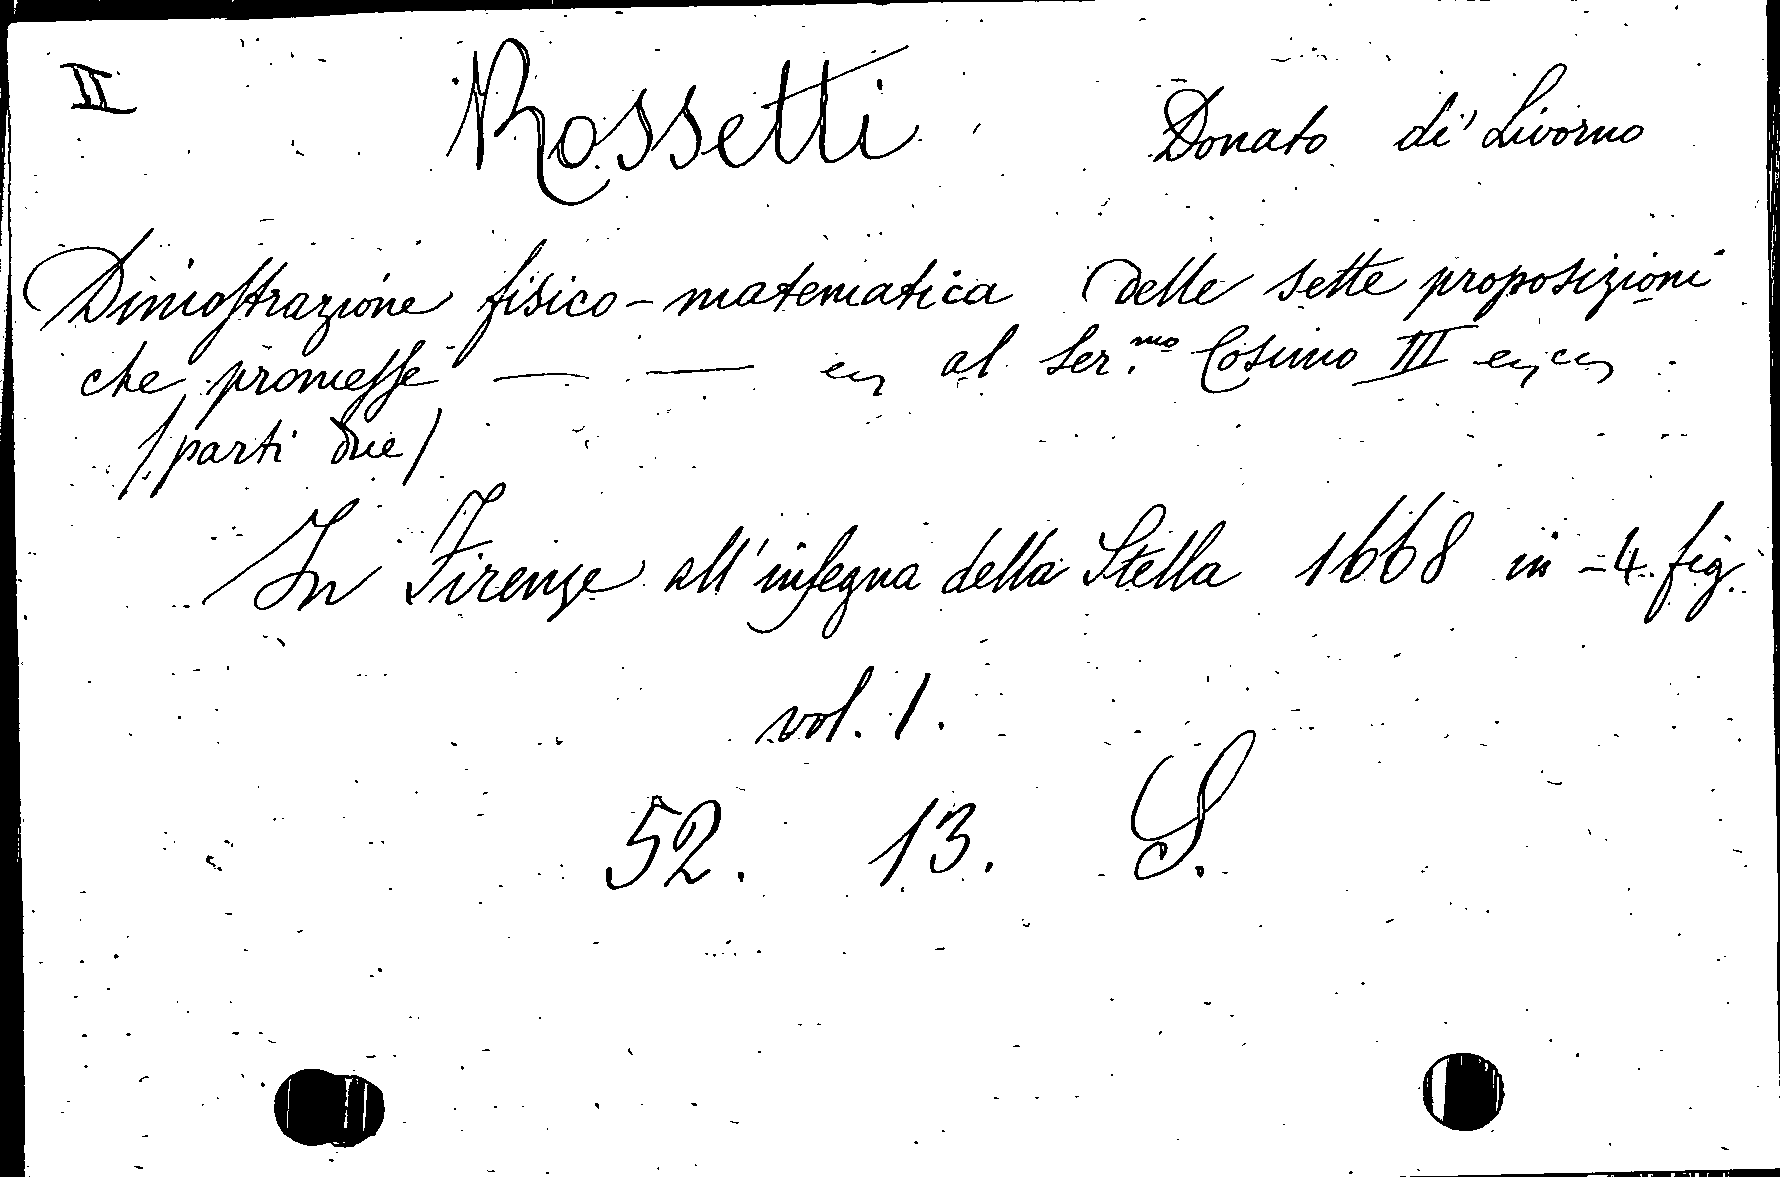 II Rossetti Donato di Livorno
Dimostrazione fisico-matematica delle sette proposizioni
che promesse — — ec, al Ser.mo Cosimo III ec, ec,
/parti due/
In Firenze all'insegna della Stella 1668 in-4. fig.
vol. 1.
52. 13. S.